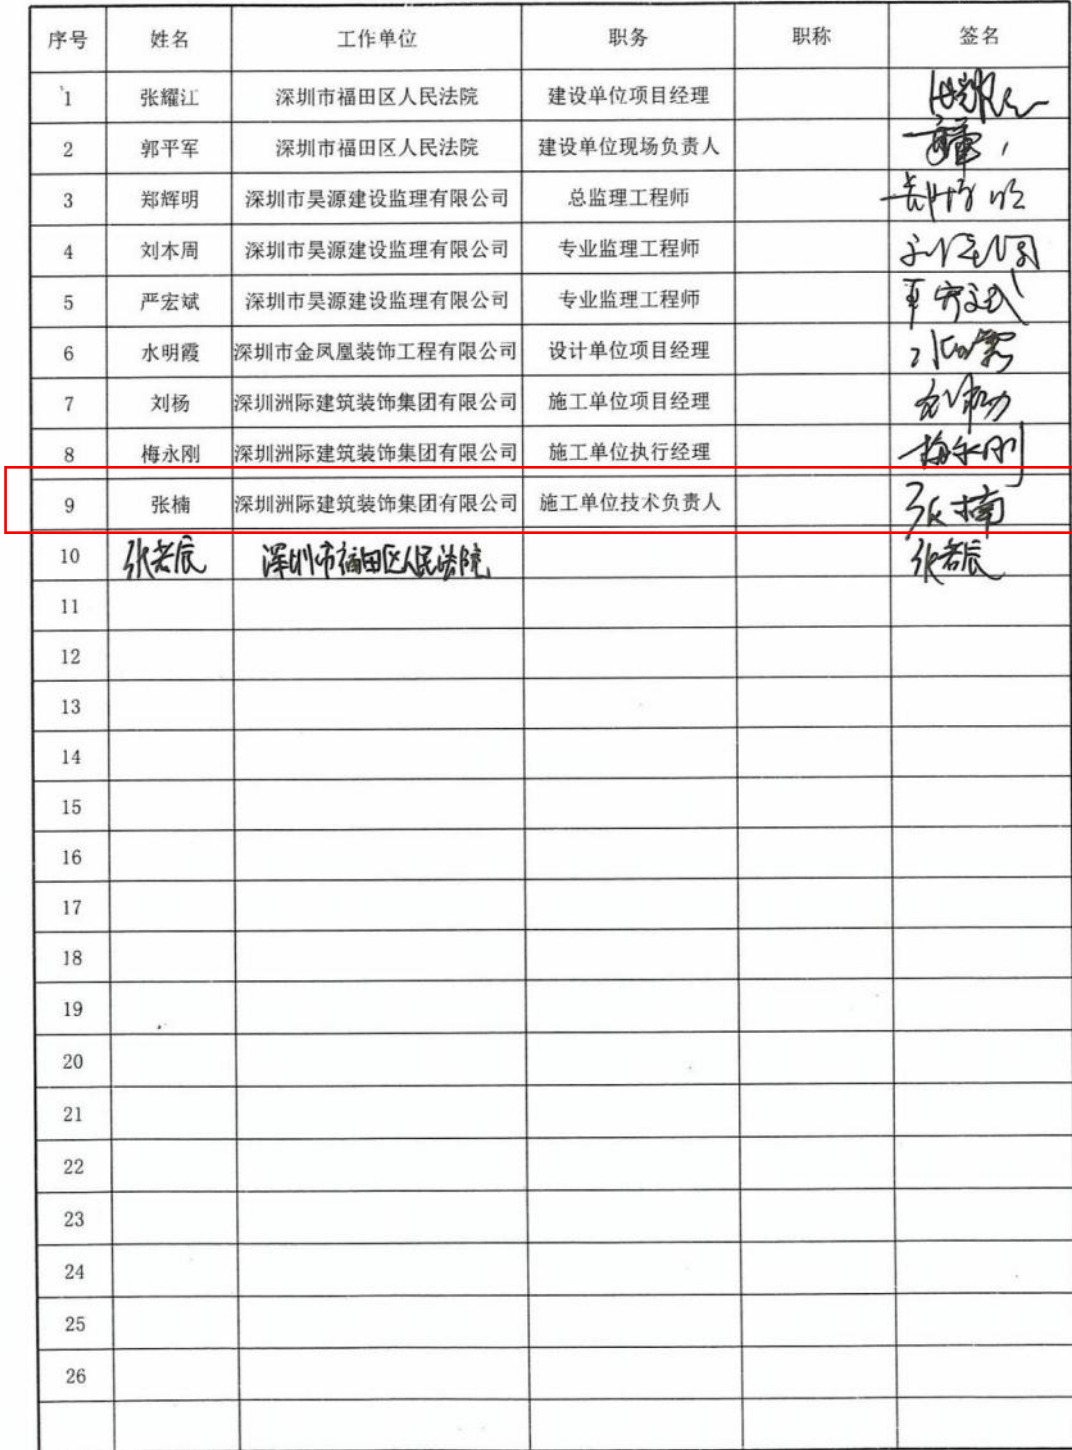 序号 姓名 工作单位 职务 职称 签名
1 张耀江 深圳市福田区人民法院 建设单位项目经理
2 郭平军 深圳市福田区人民法院 建设单位现场负责人
3 郑辉明 深圳市昊源建设监理有限公司 总监理工程师
4 刘本周 深圳市昊源建设监理有限公司 专业监理工程师
5 严宏斌 深圳市昊源建设监理有限公司 专业监理工程师
6 水明霞 深圳市金凤凰装饰工程有限公司 设计单位项目经理
7 刘杨 深圳洲际建筑装饰集团有限公司 施工单位项目经理
8 梅永刚 深圳洲际建筑装饰集团有限公司 施工单位执行经理 梅永刚
9 张楠 深圳洲际建筑装饰集团有限公司 施工单位技术负责人 张楠
10 张若辰 深圳市福田区人民法院 张若辰
11
12
13
14
15
16
17
18
19
20
21
22
23
24
25
26